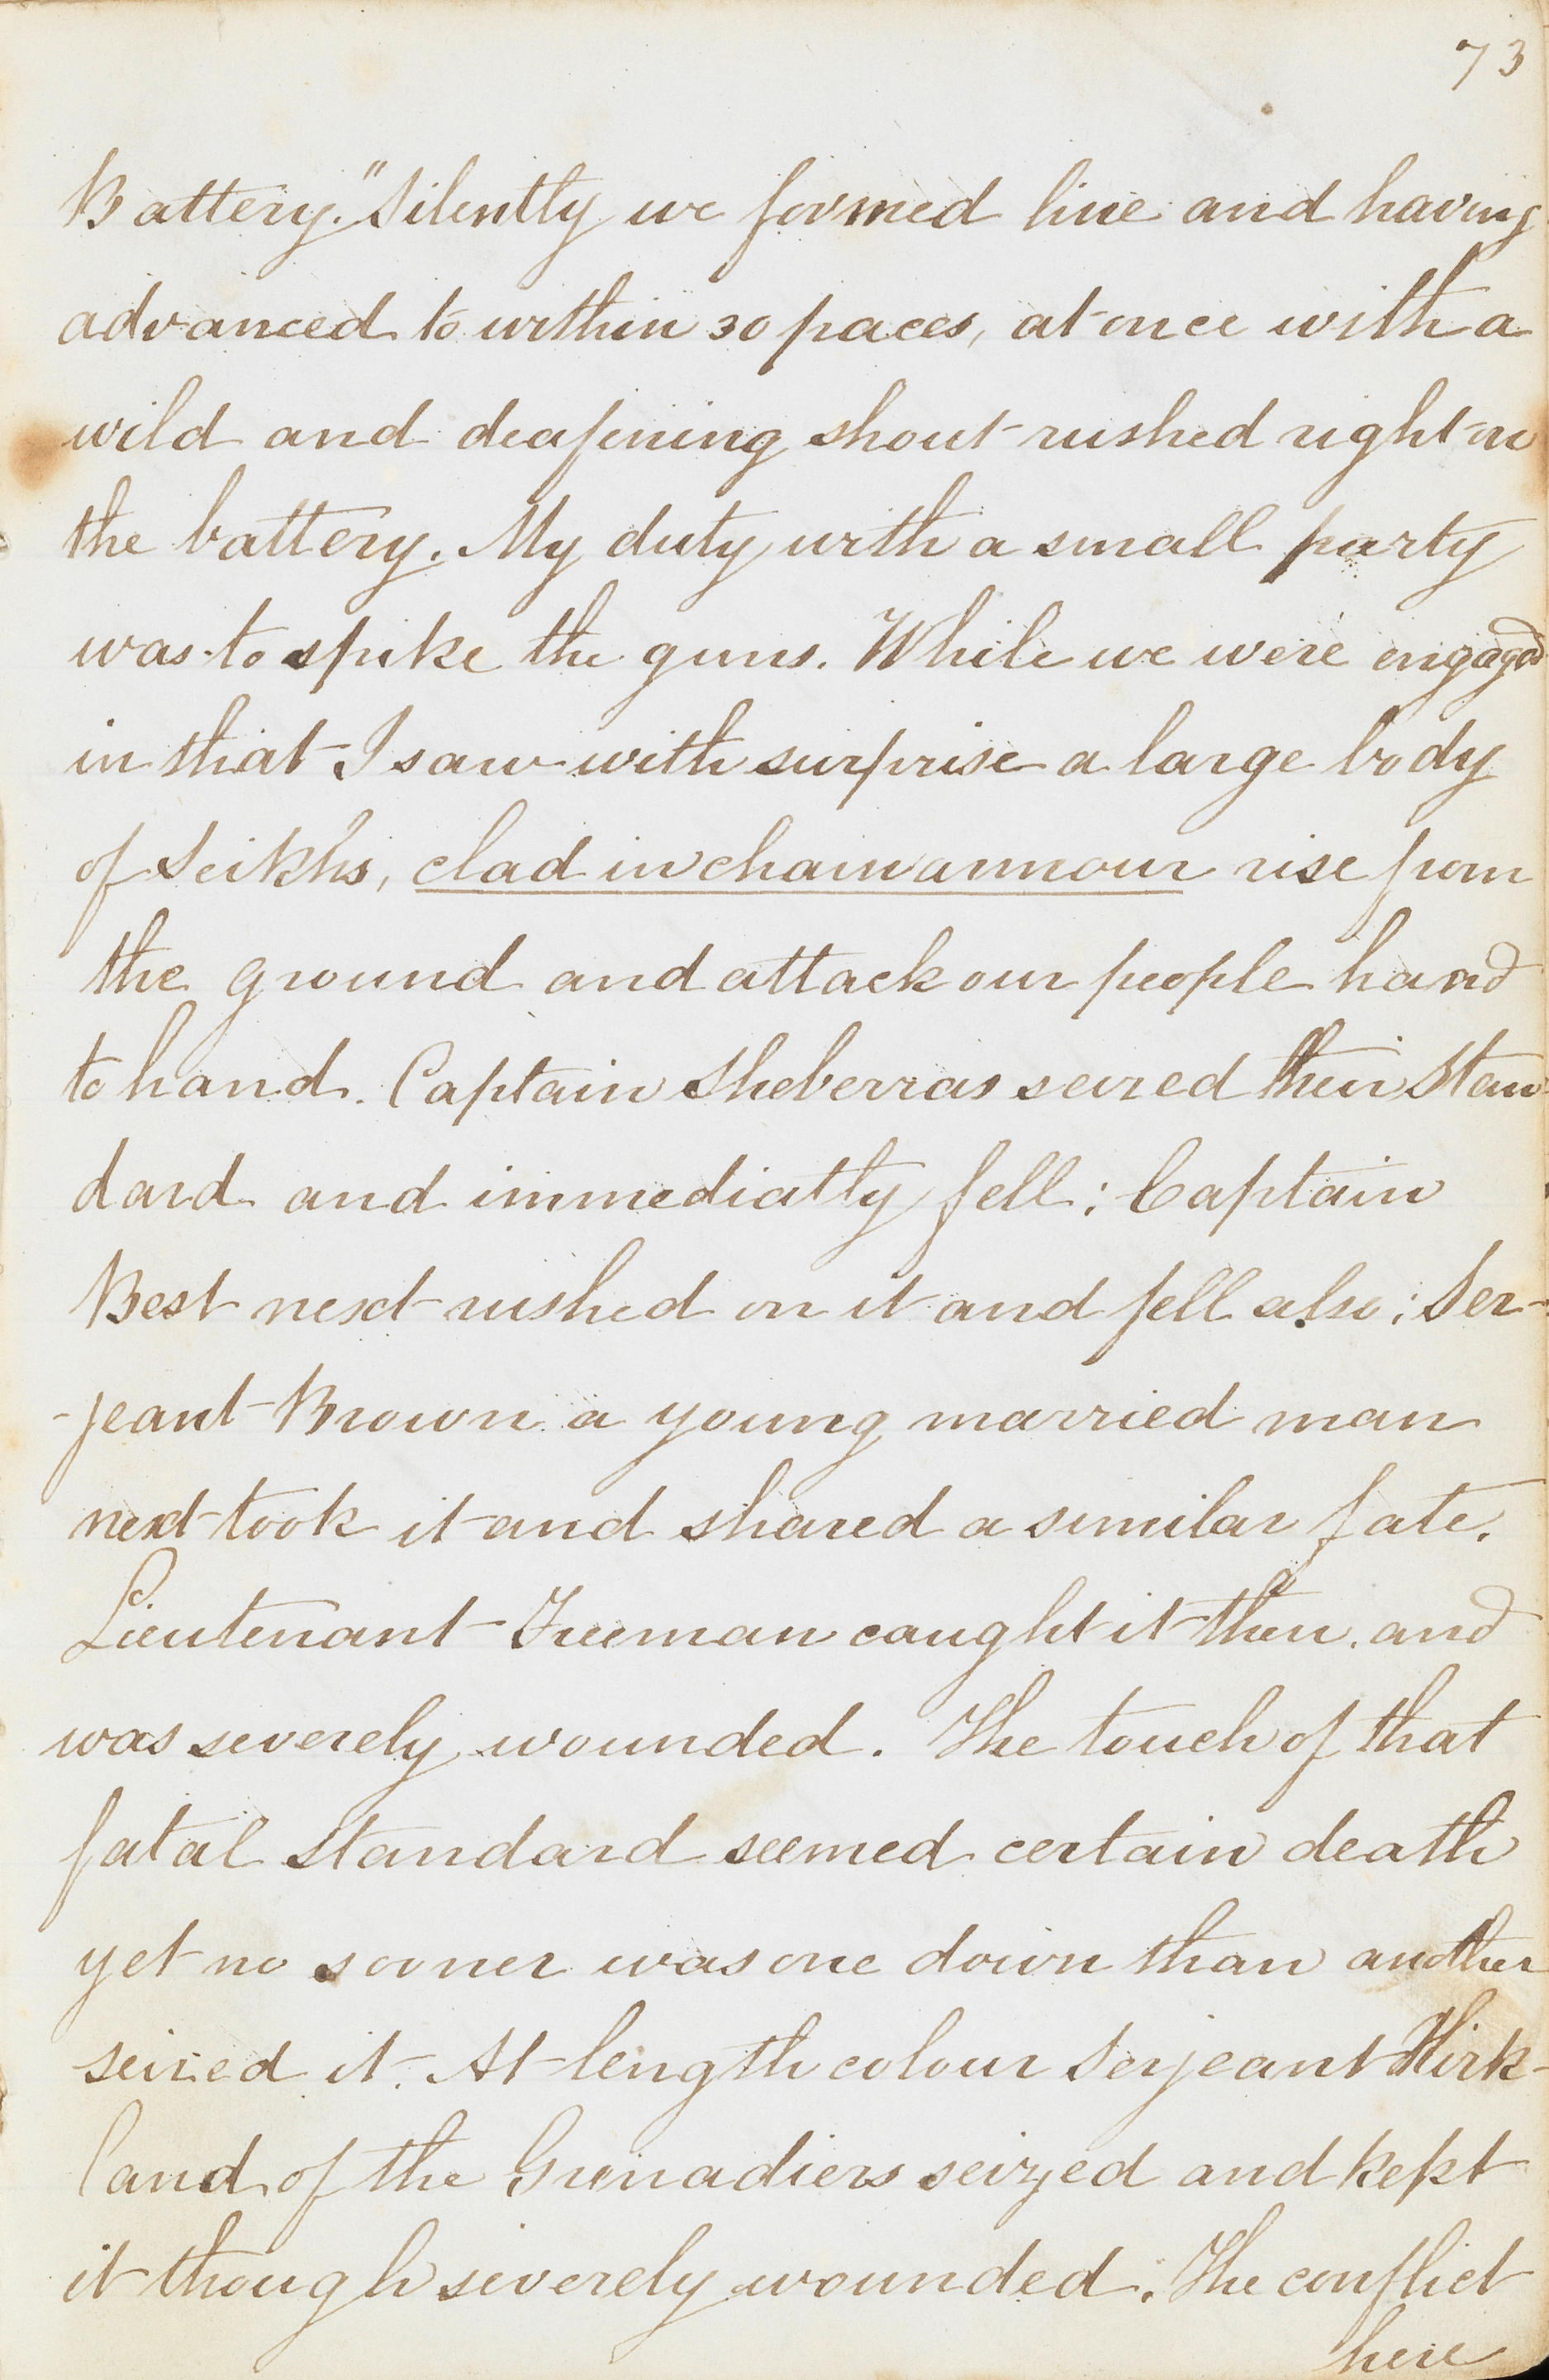 73
Battery." Silently we formed line and having
advanced to within 30 paces, at once with a
wild and deafening shout rushed right on
the battery. My duty with a small party
was to spike the guns. While we were engaged
in that I saw with surprise a large body
of Seikhs, clad in chain armour rise from
the ground and attack our people hand
to hand. Captain Sheberras seized their Stan-
dard and immediatly fell; Captain
Best next rushed on it and fell also; Ser-
-jeant Brown a young married man
next took it and shared a similar fate.
Lieutenant Freeman caught it then and
was severely wounded. The touch of that
fatal standard seemed certain death
yet no sooner was one down than another
seized it. At length colour Serjeant Kirk-
land of the Grenadiers seized and kept
it though severely wounded. The conflict
here